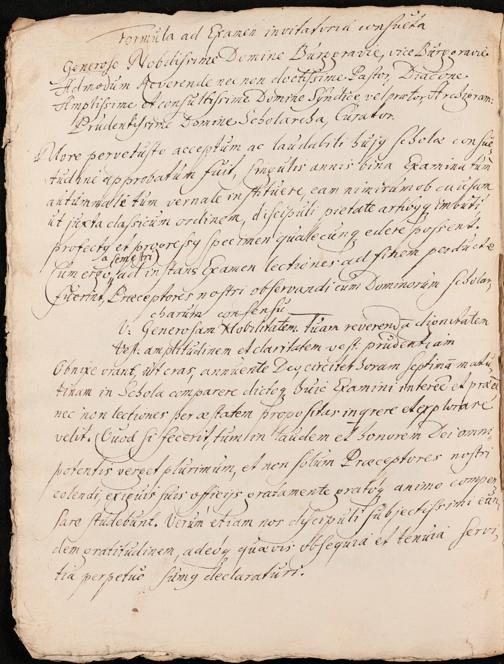 Formula ad Examen invitatoria consueta
Generose Nobilissime Domine Burggravie, vice Burggravie
Admodum Reverende nec non doctissime Pastor, Diacone
Amplissime et consultissime Domine Syndice vel prætor, Archigram:
Prudentissime Domine Scholarcha, Curator.
More pervetusto acceptum ac laudabili hujȝ scholæ consue
tudine approbatum fuit, singulis annis bina Examina tum
autumnale tum vernale instituere, eam nimirum ob causam
ut juxta classicum ordinem, discipuli pietate artibȝ imbuti
profectȝ et progressȝ specimen qualecunqȝ edere possent.
Cum ergo, ad instans Examen lectiones ad finem perductæ
fuerint, Præceptores nostri observandi cum Dominorum Scholar,
charum consensu
V: Generosam Nobilitatem tuam reverend a dignitatem
Vest: amplitudinem et claritatem vest prudentiam
Obnixe orant, ut cras, annuente Deo circiter horam septimã matu
tinam in Schola comparere dictoqȝ huic Examini interesse et præ
nec non lectiones per æstatem propositas in gre et explorare
velit. Quod si fecerit, tum in laudem et honorem Dei omni
potentis verget plurimum, et non solum Præceptores nostri
colendi, exiguis suis officijs gratamente gratoqȝ animo compen
sare studebunt. Verum etiam nos discipuli subjectissimi ean,
dem gratitudinem, adeoqȝ quævis obsequia et tenuia servi,
tia perpetuo sumȝ declaraturi.